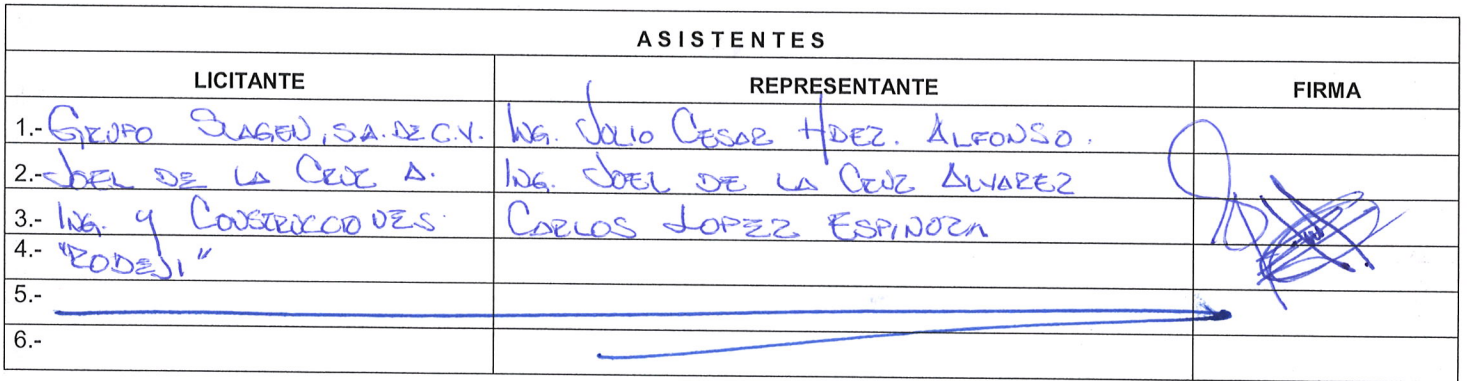 ASISTENTES
LICITANTE REPRESENTANTE FIRMA
1.- GRUPO SLAGEN, S.A. DE C.V. ING. JULIO CESAR HDEZ. ALFONSO.
2.- JOEL DE LA CRUZ A. ING. JOEL DE LA CRUZ ALVAREZ
3.- ING. y CONSTRUCCIONES CARLOS LOPEZ ESPINOZA
4.- "RODEJI"
5.-
6.-